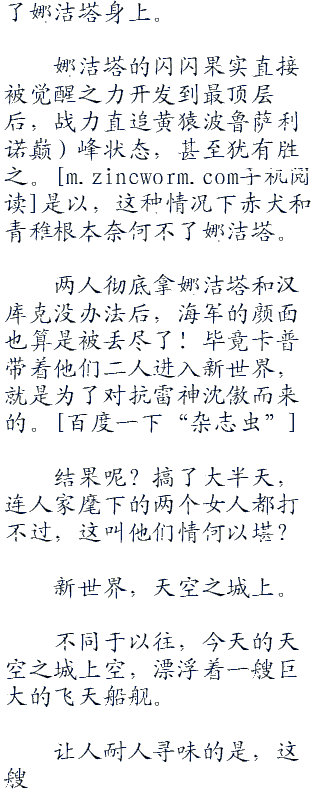 了娜洁塔身上。
娜洁塔的闪闪果实直接
被觉醒之力开发到最顶层
后，战力直追黄猿波鲁萨利
诺巅）峰状态，甚至犹有胜
之。[m.zincworm.com手机阅
读]是以，这种情况下赤犬和
青稚根本奈何不了娜洁塔。
两人彻底拿娜洁塔和汉
库克没办法后，海军的颜面
也算是被丢尽了！毕竟卡普
带着他们二人进入新世界，
就是为了对抗雷神沈傲而来
的。[百度一下“杂志虫”]
结果呢？搞了大半天，
连人家麾下的两个女人都打
不过，这叫他们情何以堪？
新世界，天空之城上。
不同于以往，今天的天
空之城上空，漂浮着一艘巨
大的飞天船舰。
让人耐人寻味的是，这
艘